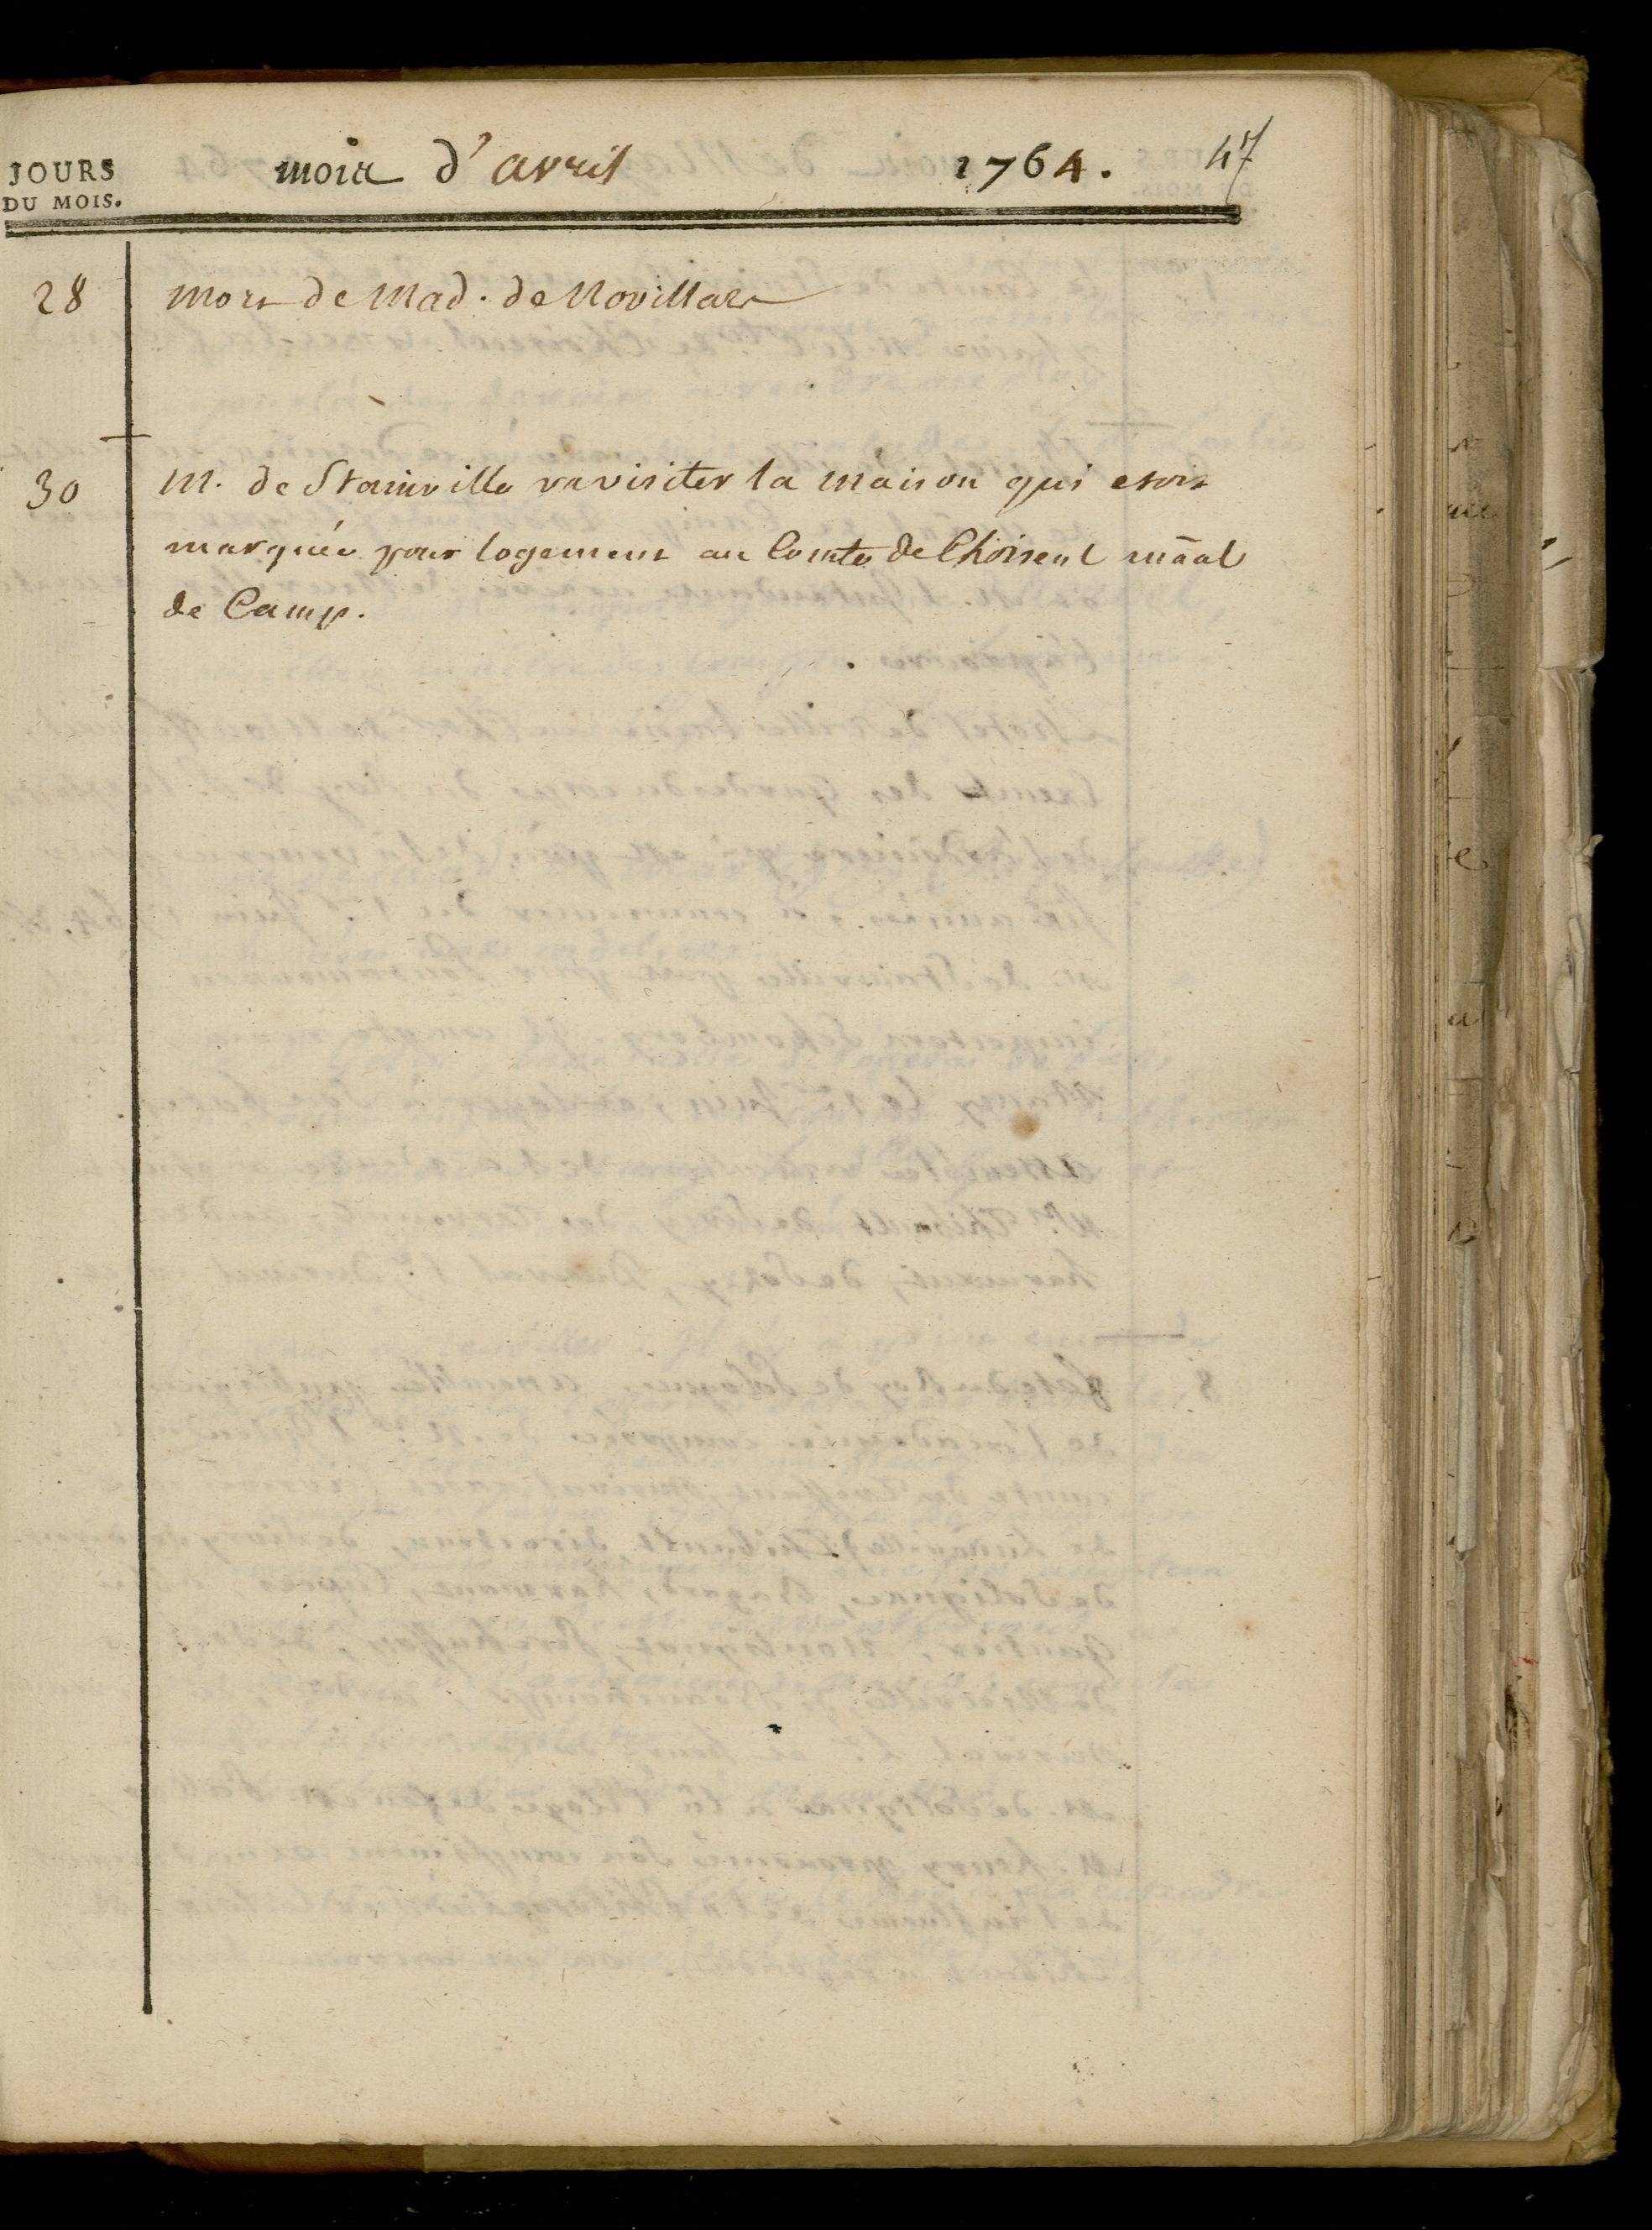 JOURS
DU MOIS.
mois d'avril 1764. 47
28 mort de Mad. de Novillars
30 M. de Stainville va visiter la maison qui etoit
marquée pour logement au Comte de Choiseul māal
de Camp.